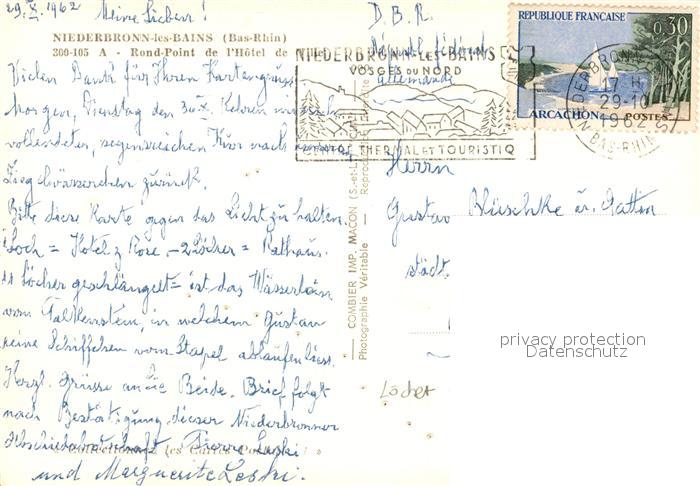 29.X.1962 Meine Lieben! D.B.R.
NIEDERBRONN-les-BAINS (Bas-Rhin)
300-105 A - Rond-Point de l'Hôtel de Ville
Allemande
Vielen Dank für Ihren Kartengruss
Morgen, Dienstag den 30.X. Kehren wir nach
vollendeter, segensreichen Kur nach
zurück.
Bitte diese Karte gegen das Licht zu halten.
1 Loch = Hotel z Rose – 2 Löcher = Rathaus.
11 Löcher geschlängelt = ist das Wässerlein
vom Falkenstein, in welchem Gustav
seine Schiffchen vom Stapel ablaufen liess.
Herzl. Grüsse an Sie Beide. Brief folgt
nach Bestätigung dieser Niederbronner
Abschiedsbotschaft. Pierre Leski
und Marguerite Leski.
Collectionnez les Cartes
COMBIER IMP. MACON (S.-et-L.)
Photographie Véritable - Reproduction
NIEDERBRONN-LES-BAINS
VOSGES DU NORD
THERMAL ET TOURISTIQ
REPUBLIQUE FRANÇAISE
0,30
ARCACHON POSTES
NIEDERBRONN-LES-B
17 H
29-10
1962
BAS-RHIN
Herrn
Gustav Blüschke u. Gattin
städt.
Löcher
privacy protection
Datenschutz